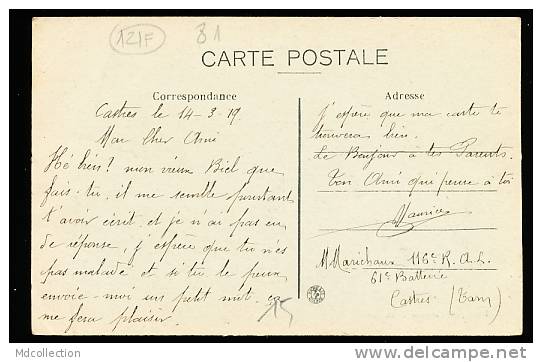 121F
81
CARTE POSTALE
Correspondance
Castres le 14-3-19.
Mon Cher Ami
Hé bien! mon vieux Biel que
fais-tu, il me semble pourtant
t'avoir écrit et je n'ai pas eu
de réponse, j'espère que tu n'es
pas malade et si tu le peux
envoie-moi un petit mot, ça
me fera plaisir.
15
Adresse
J'espère que ma carte te
trouvera bien.
Le Bonjour à tes Parents.
Ton Ami qui pense à toi
Maurice
M Marichaux 116e R.A.L.
61e Batterie
Castres (Tarn)
Mdcollection
http://mdcollection.delcampe.net